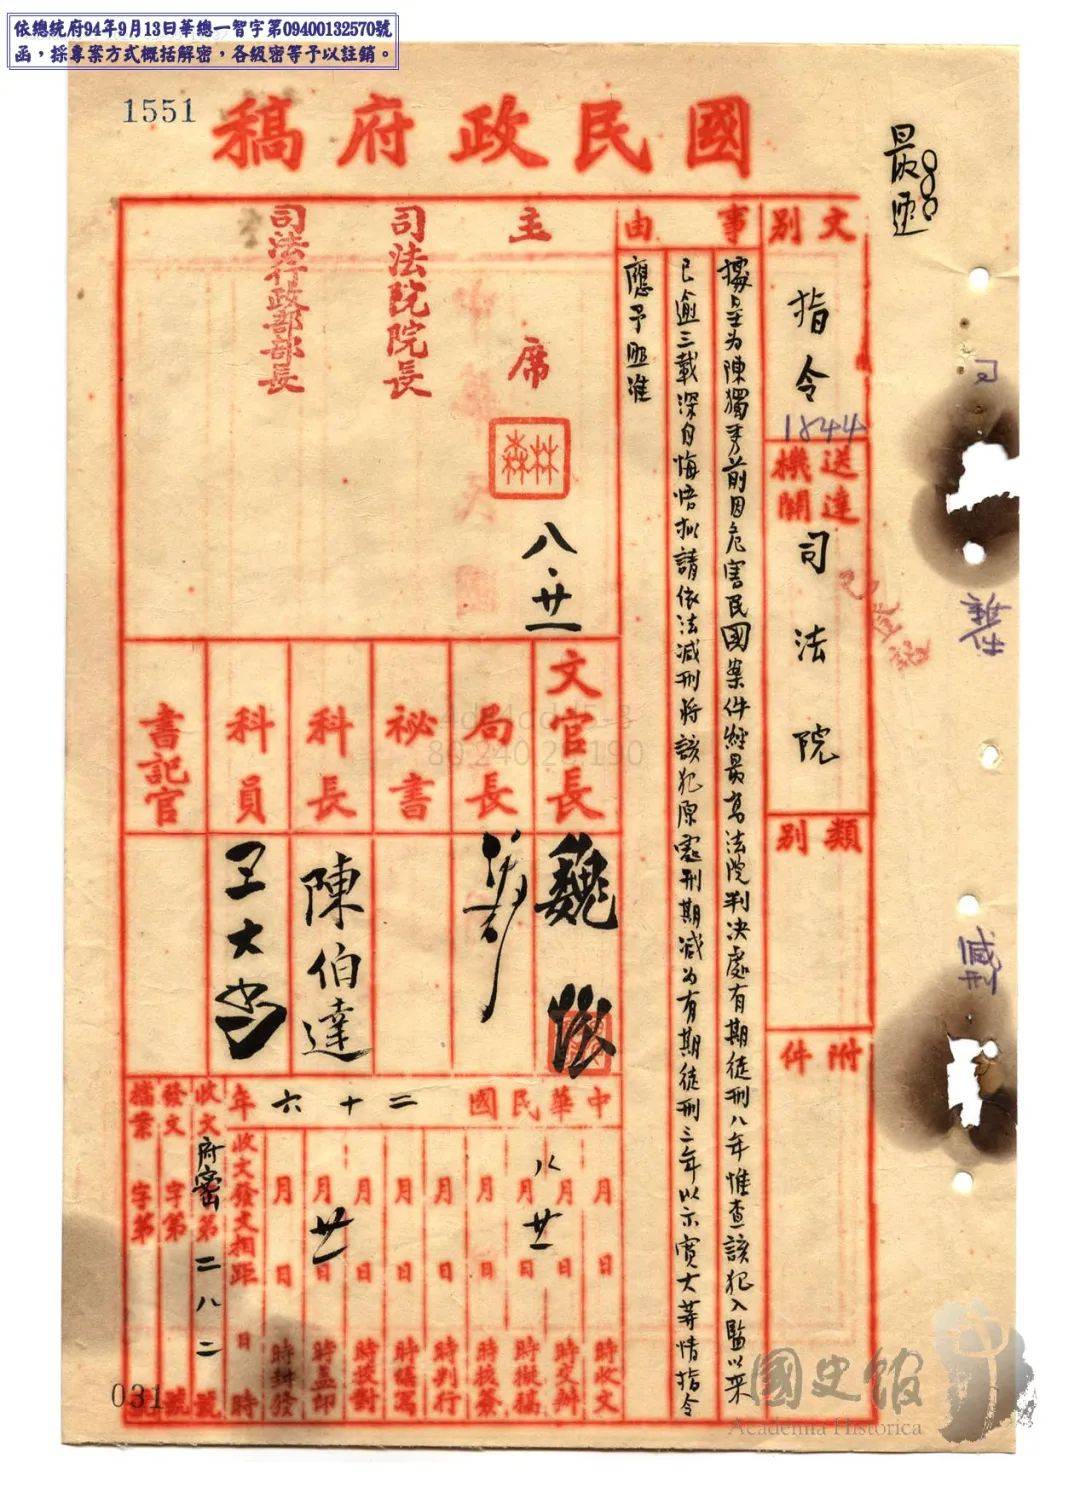 依總統府94年9月13日華總一智字第09400132570號
函，採專案方式概括解密，各級密等予以註銷。
1551
國民政府稿
最速
文別
指令
1844
送達機關
司法院
已登記
類別
附件
減刑
事由
據呈为陳獨秀前因危害民國案件經最高法院判决處有期徒刑八年惟查該犯入監以来
已逾三載深自悔悟拟請依法减刑将該犯原處刑期减为有期徒刑三年以示寬大等情指令
應予照准
主席
林森
八．廿一
司法院院長
司法行政部部長
文官長
魏懷
局長
秘書
科長
陳伯達
科員
王大
書記官
中華民國二十六年
月日時收文
八月廿一日時交辦
月日時擬稿
月日時核簽
月日時判行
月日時繕寫
月日時校對
月廿一日時蓋印
月日時封發
收文發文相距日時
收文府密字第二八二號
發文字第號
檔案字第號
031
4dd4cddd5-3
80.240.29.190
國史館
Academia Historica